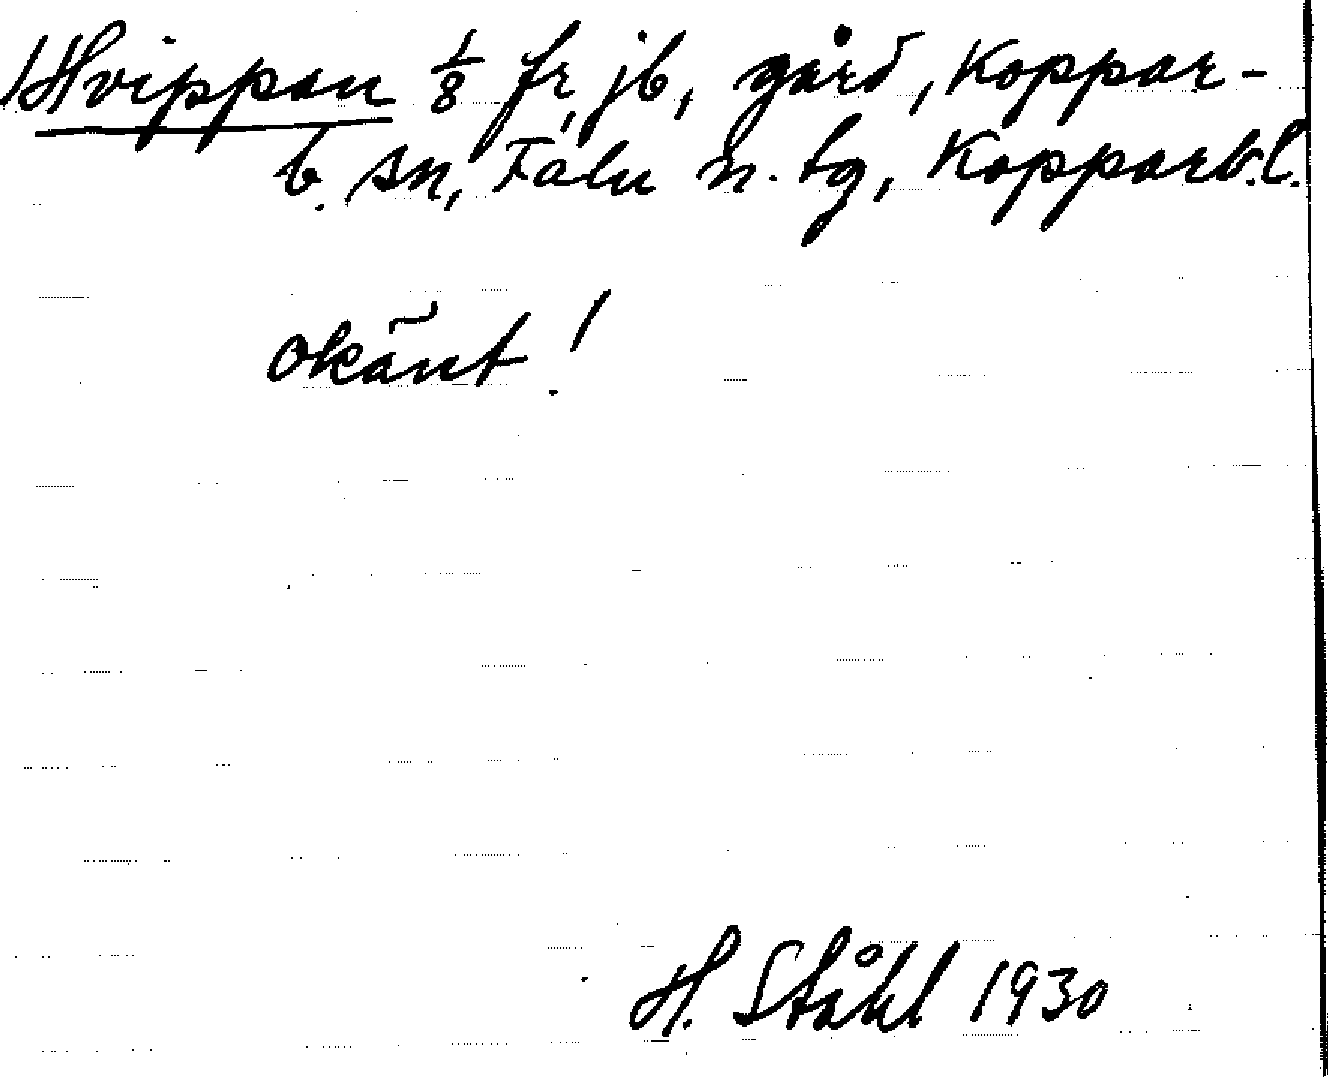 Hvippan 1/8 fr, jb, gård, Koppar-
b. sn, Falu n. tg, Kopparb.l.
Okänt!
H. Ståhl 1930